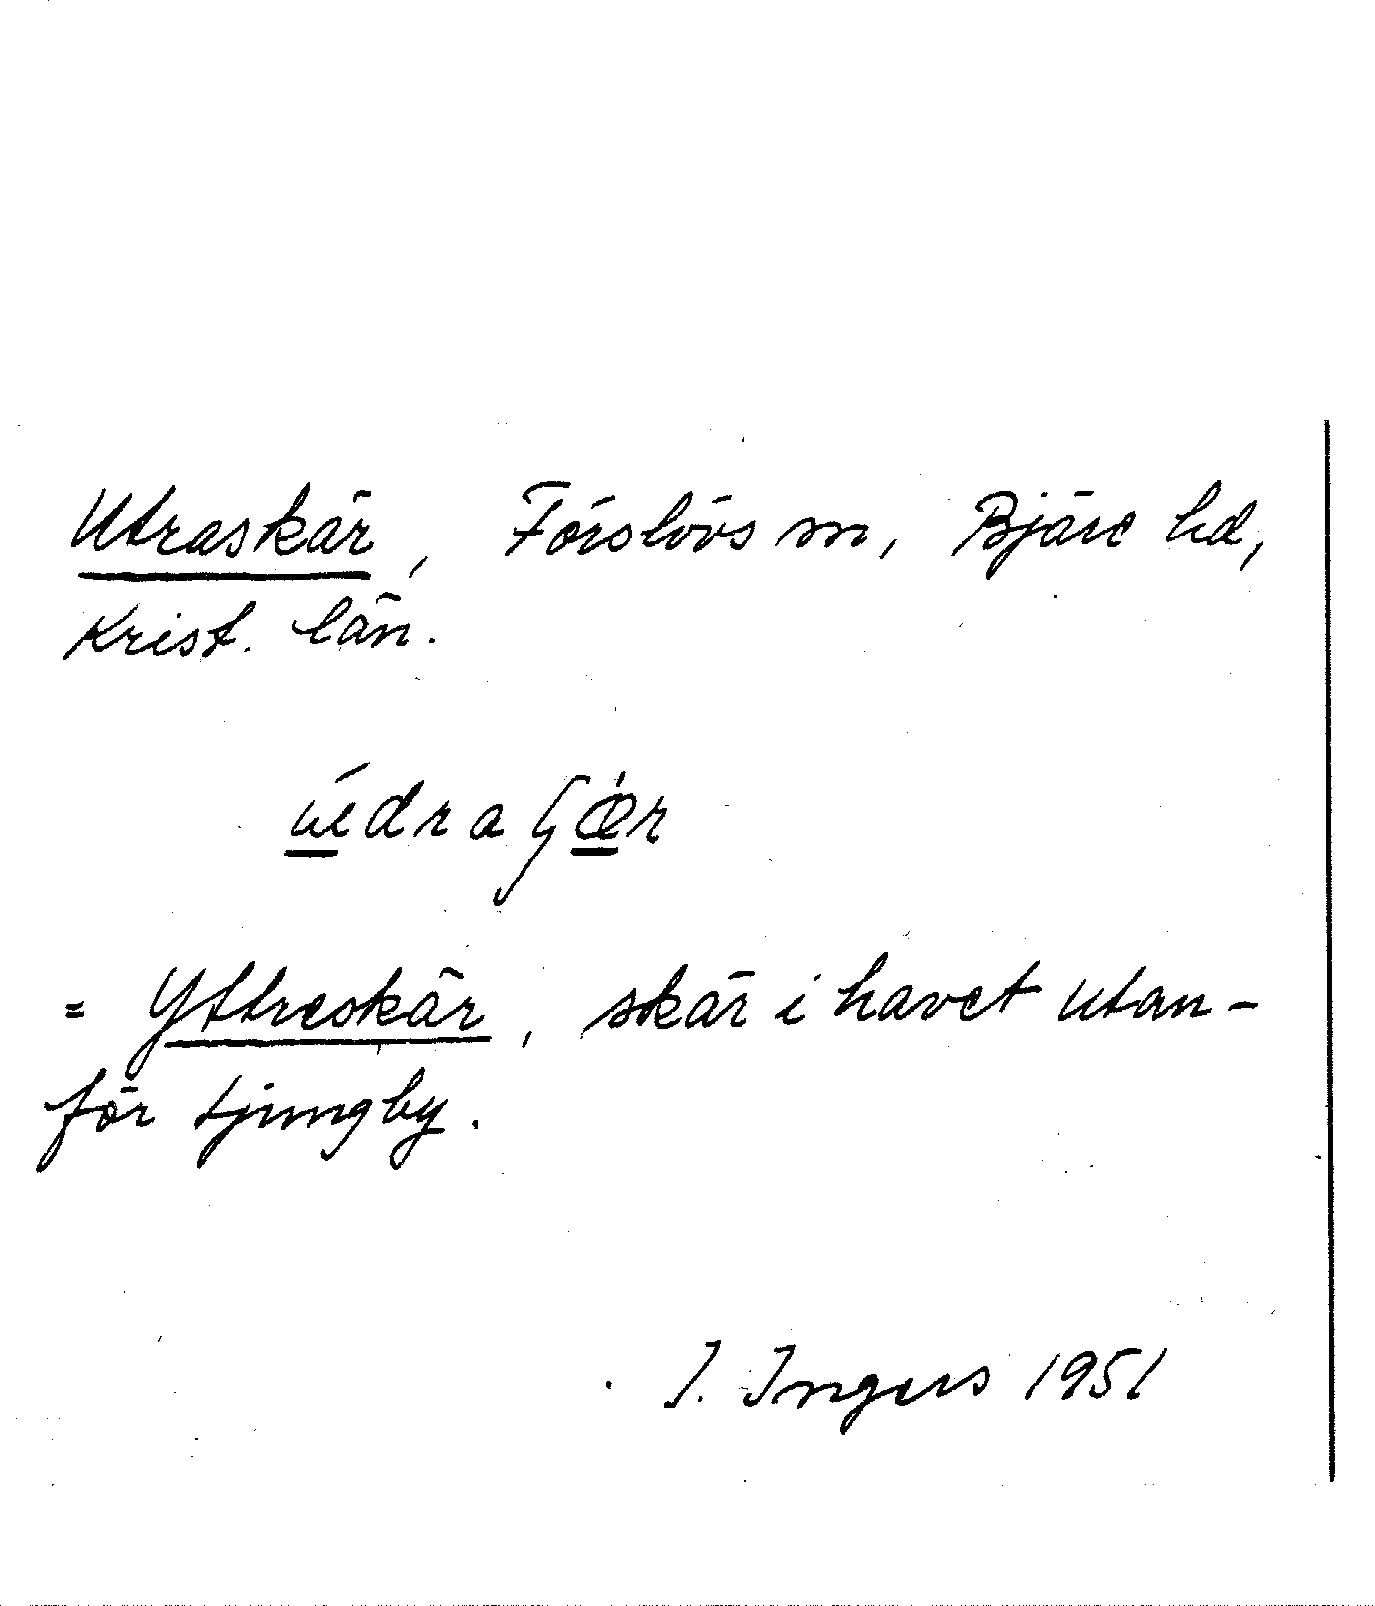 Utraskär, Förslövs sn, Bjäre hd,
Krist. län.
= Yttreskär, skär i havet utan-
för Ljungby.
I. Ingers 1951